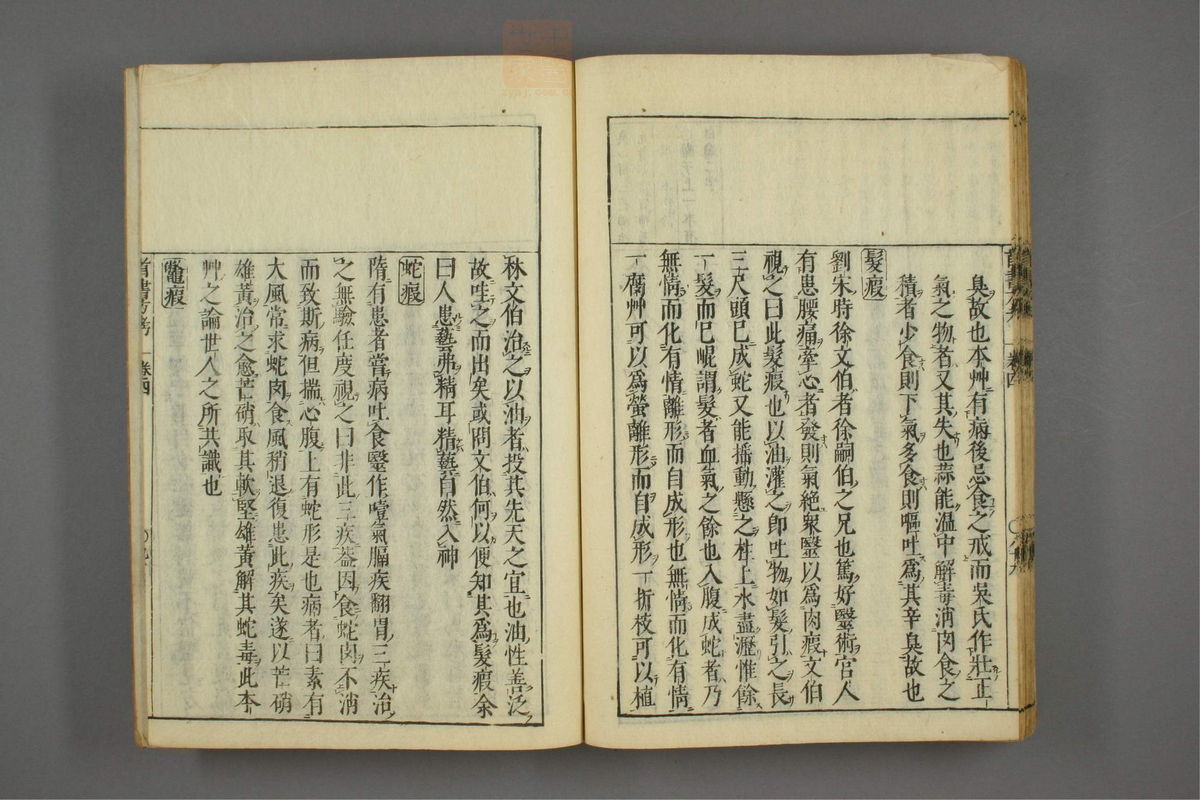 臭故也本艸有病後忌食之戒而吳氏作壯正
氣之物者又其失也蒜能溫中解毒消肉食之
積者少食則下氣多食則嘔吐爲其辛臭故也
髮瘕
劉宋時徐文伯者徐嗣伯之兄也篤好醫術宮人
有患腰痛牽心者發則氣絶衆醫以爲肉瘕文伯
視之曰此髮瘕也以油灌之卽吐物如髮引之長
三尺頭已成蛇又能搖動懸之柱上水盡瀝惟餘
一髮而已崐謂髮者血氣之餘也入腹成蛇者乃
無情而化有情離形而自成形也無情而化有情
一腐艸可以爲螢離形而自成形一折枝可以植
林文伯治之以油者投其先天之宜也油性善泛
故哇之而出矣或問文伯何以便知其爲髮瘕余
曰人患藝弗精耳精藝自然入神
蛇瘕
隋有患者嘗病吐食醫作噎氣膈疾翻胃三疾治
之無驗任度視之曰非此三疾葢因食蛇肉不消
而致斯病但揣心腹上有蛇形是也病者曰素有
大風常求蛇肉食風稍退復患此疾矣遂以芒硝
雄黃治之愈芒硝取其軟堅雄黃解其蛇毒此本
艸之論世人之所共識也
鼈瘕
卷四